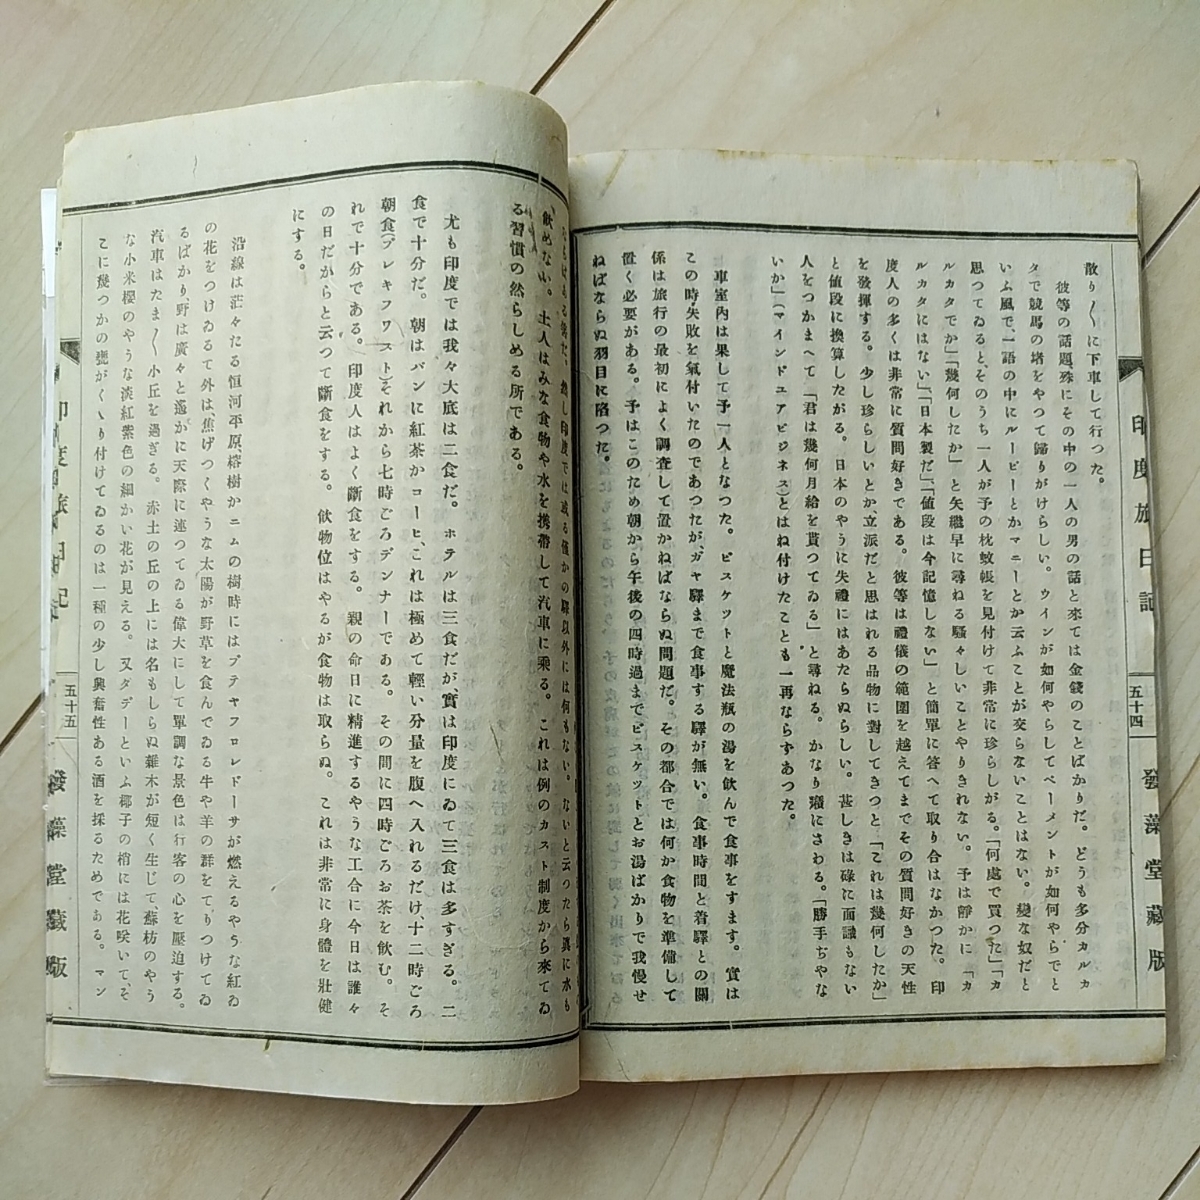 印度旅日記
五十四
發藻堂藏版
散り〱に下車して行つた。
彼等の話題、殊にその中の一人の男の話と來ては金錢のことばかりだ。どうも多分カルカ
タで競馬の堵をやつて歸りがけらしい。ウインが如何やらしてペーメントが如何やらでと
いふ風で、一語の中にルーピーとかマニーとか云ふことが交らないことはない。變な奴だと
思つてゐると、そのうち一人が予の枕蚊帳を見付けて非常に珍らしがる。「何處で買つた」「カ
ルカタでか」「幾何したか」と矢繼早に尋ねる騷々しいことやりきれない。予は靜かに「カ
ルカタにはない」「日本製だ」「値段は今記憶しない」と簡單に答へて取り合はなかつた。印
度人の多くは非常に質問好きである。彼等は禮儀の範圍を越えてまでその質問好きの天性
を發揮する。少し珍らしいとか、立派だと思はれる品物に對してきつと「これは幾何したか」
と値段に換算したがる。日本のやうに失禮にはあたらぬらしい。甚しきは碌に面識もない
人をつかまへて「君は幾何月給を貰つてゐる」と尋ねる。かなり癪にさわる。「勝手ぢやな
いか」(マインドユアビジネス)とはね付けたことも一再ならずあつた。
車室內は果して予一人となつた。ビスケツトと魔法瓶の湯を飮んで食事をすます。實は
この時失敗を氣付いたのであつたが、ガヤ驛まで食事する驛が無い。食事時間と着驛との關
係は旅行の最初によく調査して置かねばならぬ問題だ。その都合では何か食物を準備して
置く必要がある。予はこのため朝から午後の四時過までビスケツトとお湯ばかりで我慢せ
ねばならぬ羽目に陷つた。
印度では或る僅かの驛以外には何もない。ないと云つたら眞に水も
飮めない。土人はみな食物や水を携帶して汽車に乘る。これは例のカスト制度から來てゐ
る習慣の然らしめる所である。
尤も印度では我々大底は二食だ。ホテルは三食だが、實は印度にゐて三食は多すぎる。二
食で十分だ。朝はパンに紅茶かコーヒ、これは極めて輕い分量を腹へ入れるだけ、十二時ごろ
朝食(ブレキフワスト)それから七時ごろデンナーである。その間に四時ごろお茶を飮む。そ
れで十分である。印度人はよく斷食をする。親の命日に精進するやうな工合に今日は誰々
の日だからと云つて斷食をする。飮物位はやるが食物は取らぬ。これは非常に身體を壯健
にする。
沿線は茫々たる恒河平原、榕樹かニムの樹時にはプテヤフロレドーサが燃えるやうな紅ゐ
の花をつけゐるて外は、焦げつくやうな太陽が野草を食んでゐる牛や羊の群をてりつけてゐ
るばかり野は廣々と遙かに天際に連つてゐる偉大にして單調な景色は行客の心を壓迫する。
汽車はたま〱小丘を過ぎる。赤土の丘の上には名もしらぬ雜木が短く生じて、蘇枋のやう
な小米櫻のやうな淡紅紫色の細かい花が見える。又タデーといふ椰子の梢には花咲いて、そ
こに幾つかの甕がくゝり付けてゐるのは一種の少し興奮性ある酒を採るためである。マン
印度旅日記
五十五
發藻堂藏版